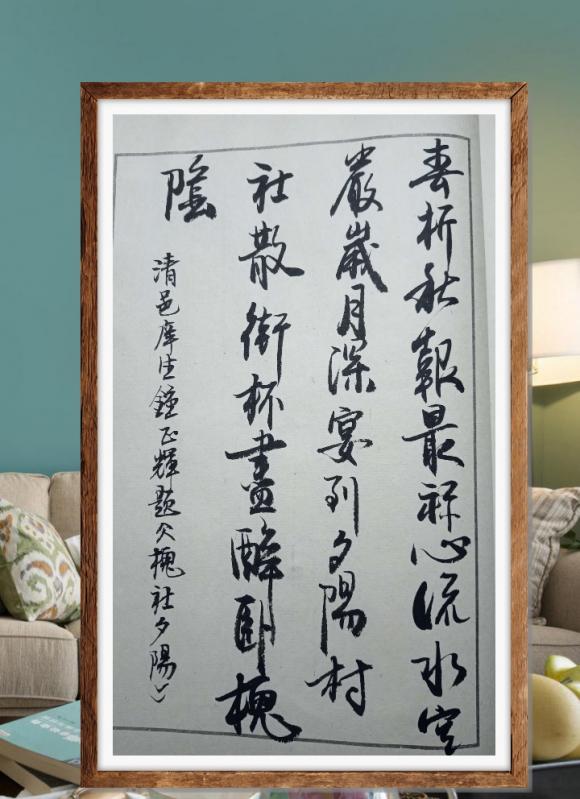 春祈秋報最稱心流水空
嚴歲月深宴到夕陽村
社散銜杯盡醉臥槐
陰
清邑庠生鍾正輝題《槐社夕陽》